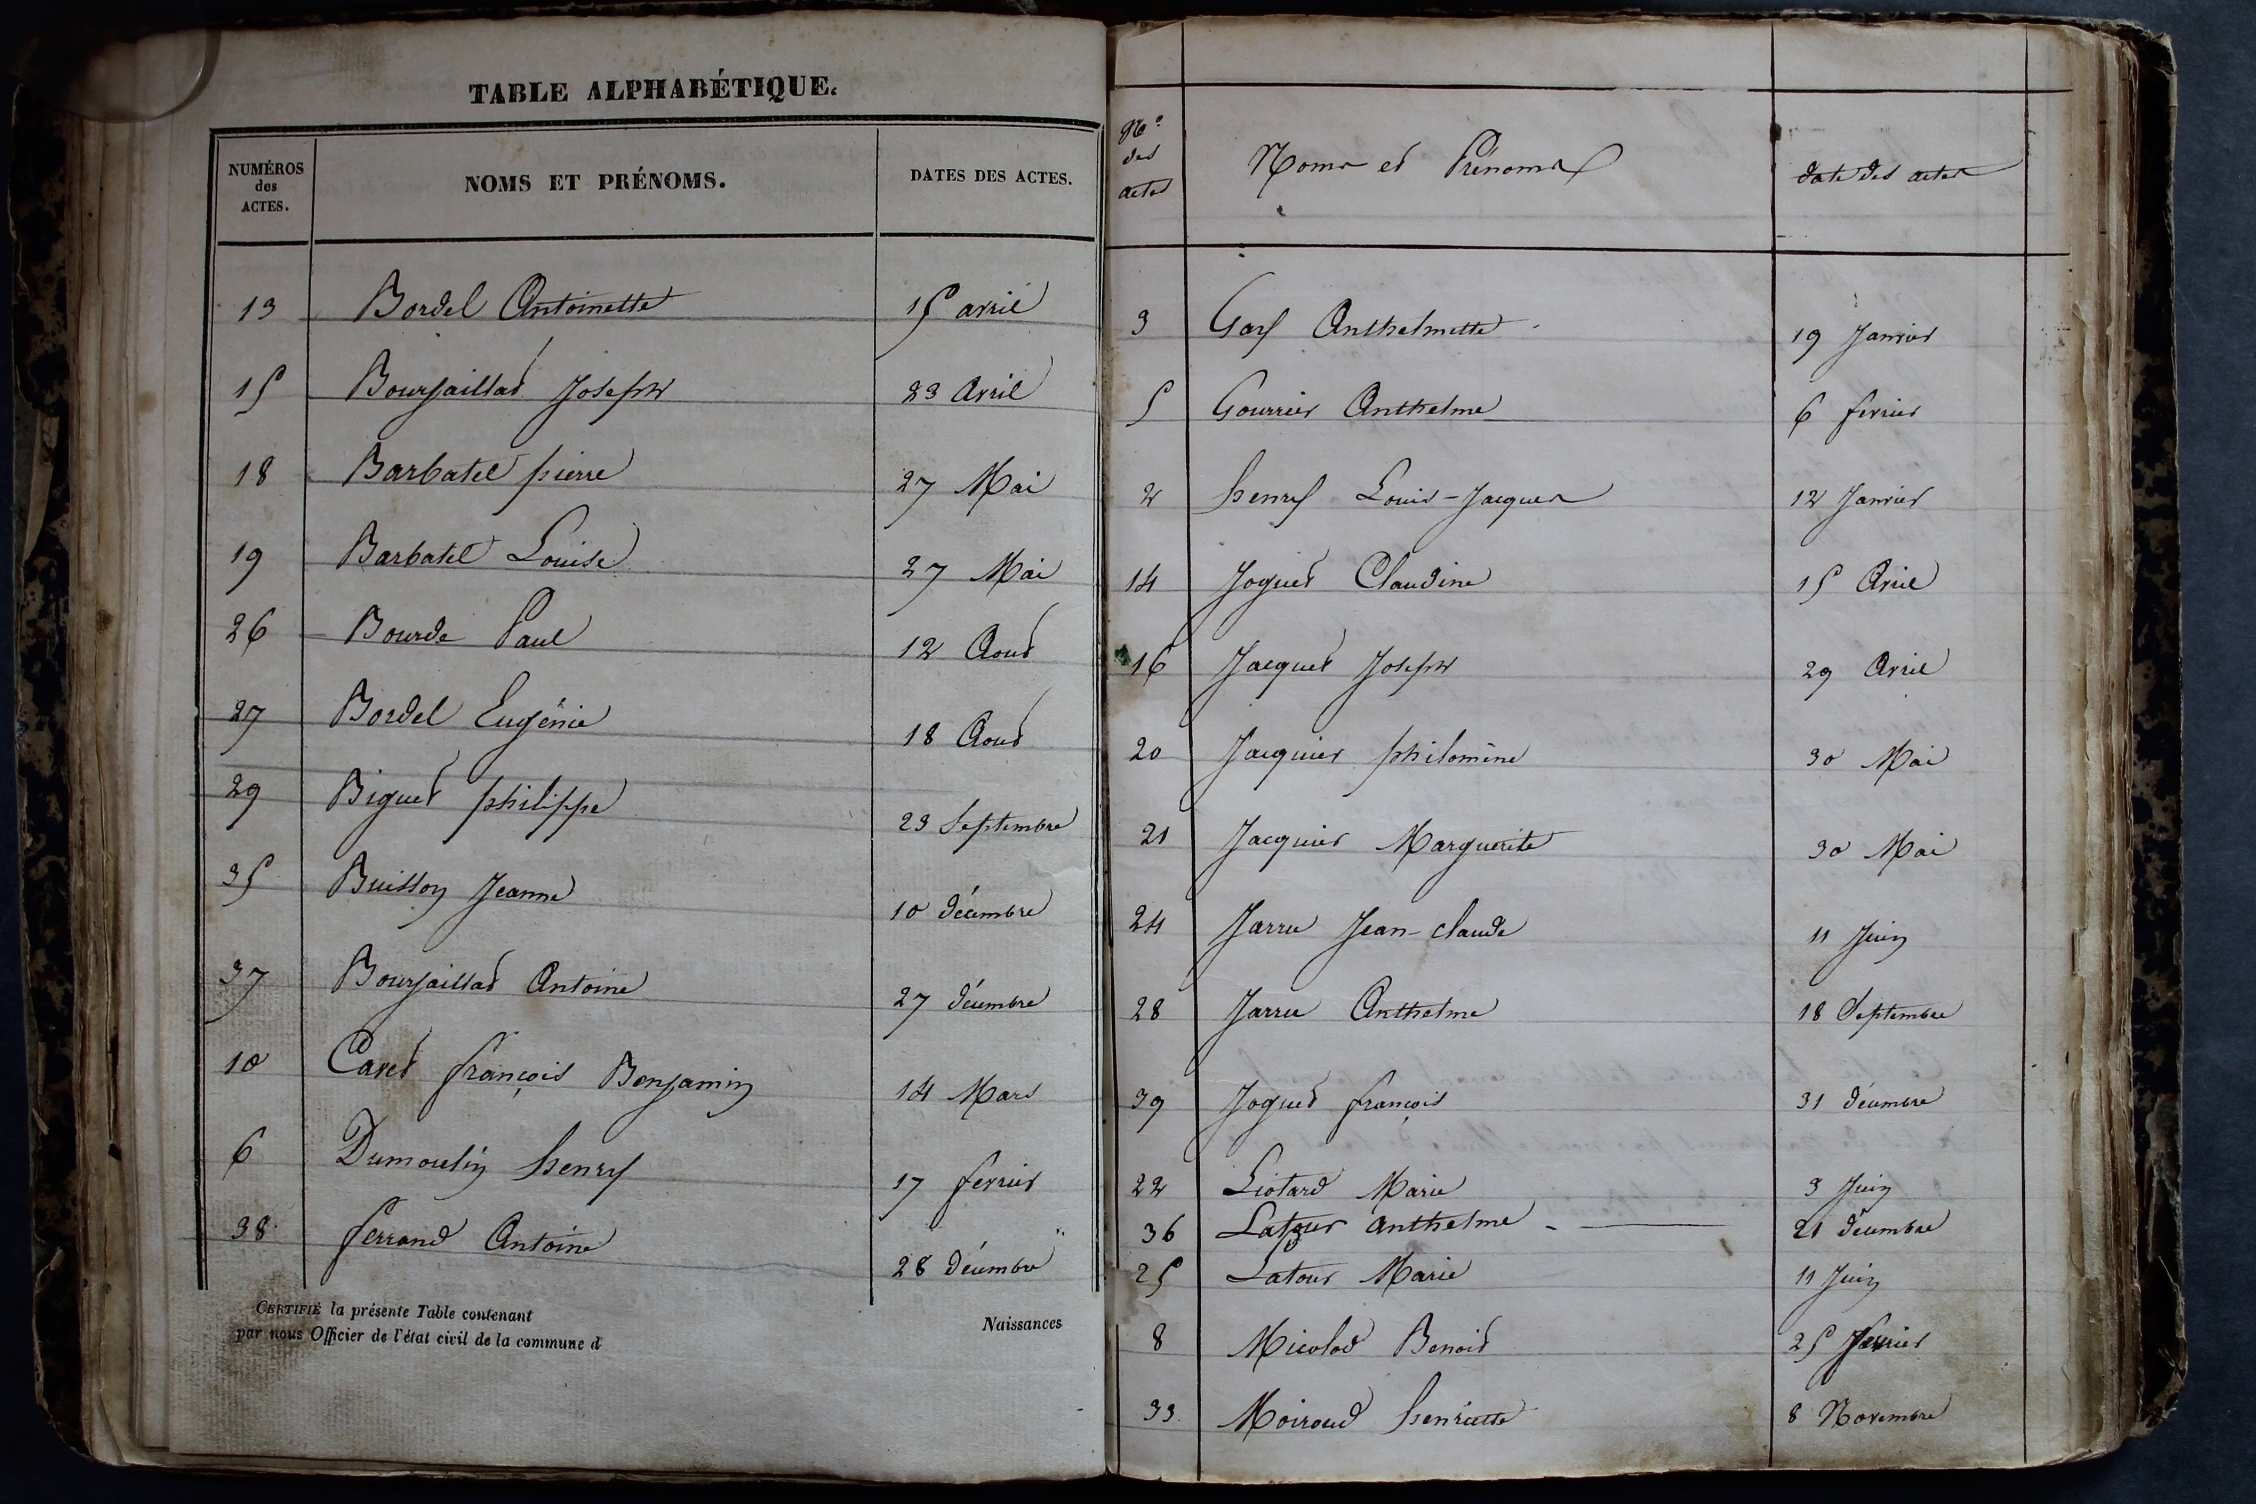 TABLE ALPHABÉTIQUE.
NUMÉROS des ACTES. NOMS ET PRÉNOMS. DATES DES ACTES.
13 Bordel Antoinette 15 avril
15 Bourjaillad Joseph 23 Avril
18 Barbatel pierre 27 Mai
19 Barbatel Louise 27 Mai
26 Bourde Paul 12 Aout
27 Bordel Eugénie 18 Aout
29 Biguet philippe 23 Septembre
35 Buisson Jeanne 10 décembre
37 Bourjaillad Antoine 27 décembre
10 Cavet françois Benjamin 14 Mars
6 Dumoulin henry 17 fevrier
38 ferrand Antoine 28 décembre
CERTIFIÉ la présente Table contenant Naissances
par nous Officier de l'état civil de la commune d
Nos des actes Noms et Prénoms date des actes
3 Gay Anthelmette 19 Janvier
5 Gourrier Anthelme 6 fevrier
2 henry Louis-Jacques 12 Janvier
14 Joguet Claudine 15 Avril
16 Jacquet Joseph 29 Avril
20 Jacquier philomène 30 Mai
21 Jacquier Marguerite 30 Mai
24 Jarru Jean-claude 11 Juin
28 Jarru Anthelme 18 Septembre
39 Joguet françois 31 décembre
22 Liotard Marie 3 Juin
36 Latour anthelme - 21 décembre
25 Latour Marie 11 Juin
8 Micolod Benoit 25 fevrier
33 Moiroud henriette 8 Novembre